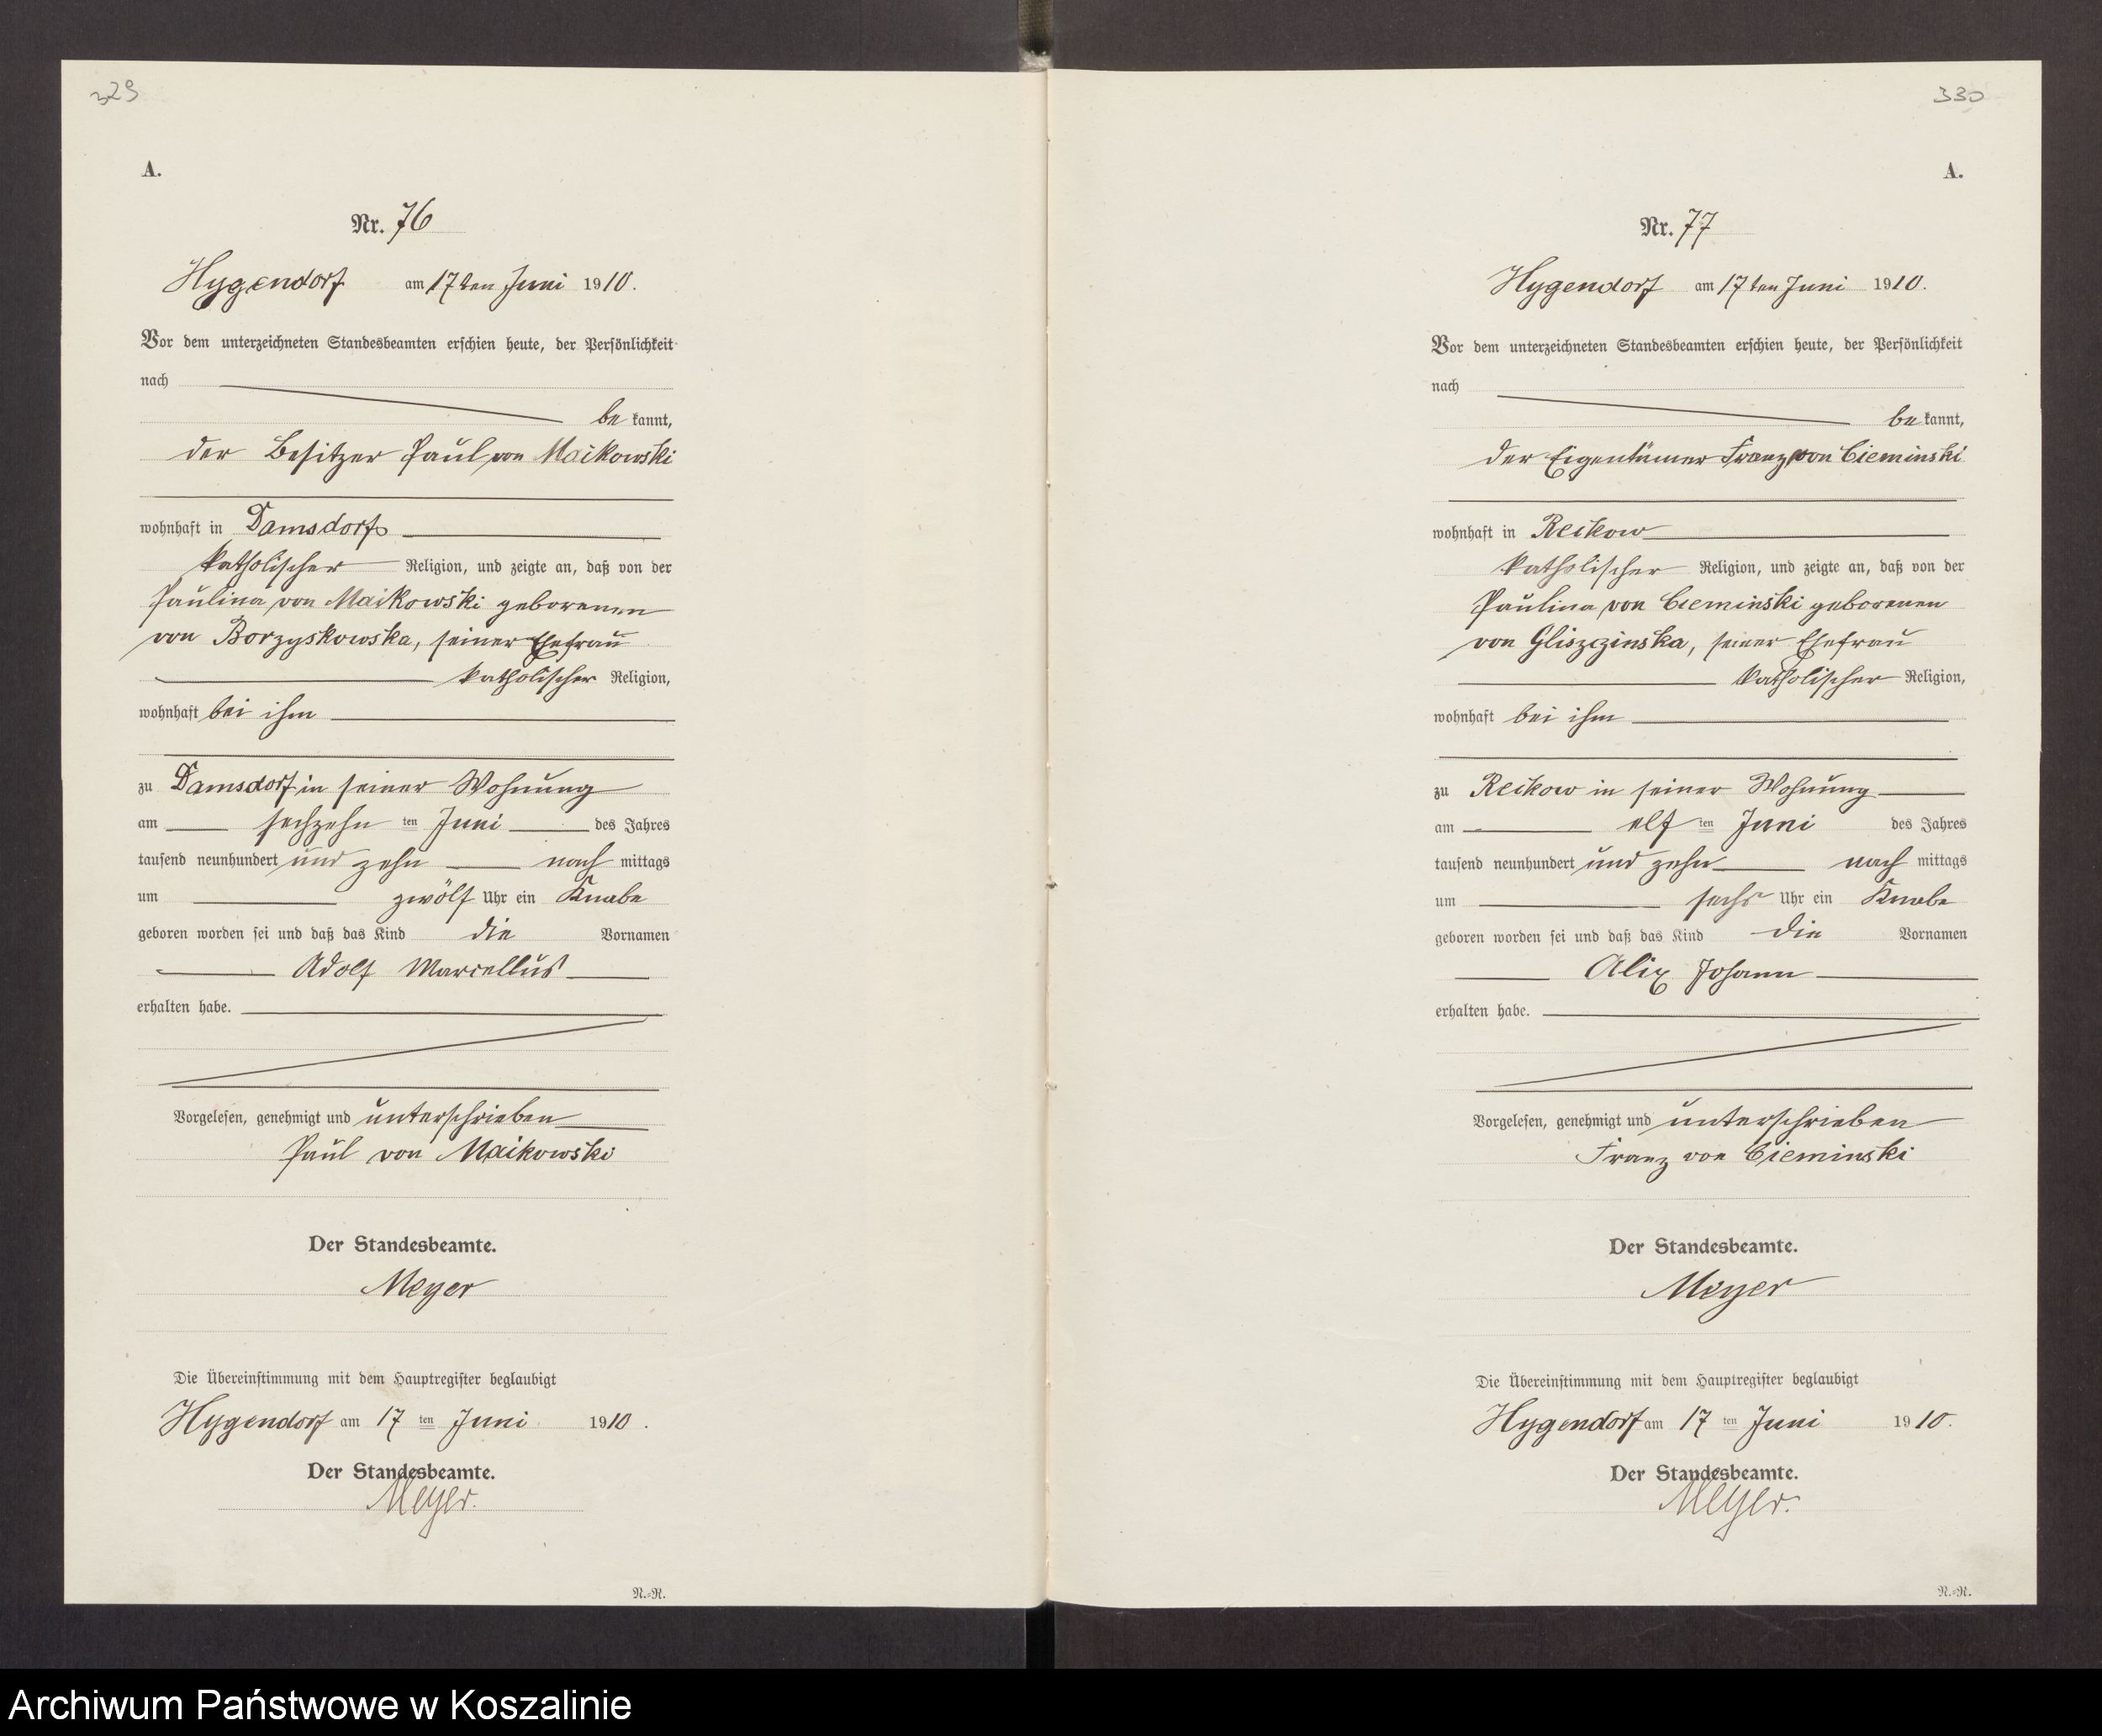 329
A.
Nr. 76
Hygendorf am 17ten Juni 1910.
Vor dem unterzeichneten Standesbeamten erschien heute, der Persönlichkeit
nach
be kannt,
der Besitzer Paul von Maikowski
wohnhaft in Damsdorf
katholischer Religion, und zeigte an, daß von der
Paulina von Maikowski geborenen
von Borzyskowska, seiner Ehefrau
katholischer Religion,
wohnhaft bei ihm
zu Damsdorf in seiner Wohnung
am sechzehn ten Juni des Jahres
tausend neunhundert und zehn nach mittags
um zwölf Uhr ein Knabe
geboren worden sei und daß das Kind die Vornamen
Adolf Marcellus
erhalten habe.
Vorgelesen, genehmigt und unterschrieben
Paul von Maikowski
Der Standesbeamte.
Meyer
Die Übereinstimmung mit dem Hauptregister beglaubigt
Hygendorf am 17 ten Juni 1910.
Der Standesbeamte.
Meyer.
N.=R.
330
A.
Nr. 77
Hygendorf am 17ten Juni 1910.
Vor dem unterzeichneten Standesbeamten erschien heute, der Persönlichkeit
nach
be kannt,
der Eigentümer Franz von Cieminski
wohnhaft in Reckow
katholischer Religion, und zeigte an, daß von der
Paulina von Cieminski geborenen
von Gliszczinska, seiner Ehefrau
katholischer Religion,
wohnhaft bei ihm
zu Reckow in seiner Wohnung
am elf ten Juni des Jahres
tausend neunhundert und zehn nach mittags
um sechs Uhr ein Knabe
geboren worden sei und daß das Kind die Vornamen
Alix Johann
erhalten habe.
Vorgelesen, genehmigt und unterschrieben
Franz von Cieminski
Der Standesbeamte.
Meyer
Die Übereinstimmung mit dem Hauptregister beglaubigt
Hygendorf am 17 ten Juni 1910.
Der Standesbeamte.
Meyer.
N.=R.
Archiwum Państwowe w Koszalinie